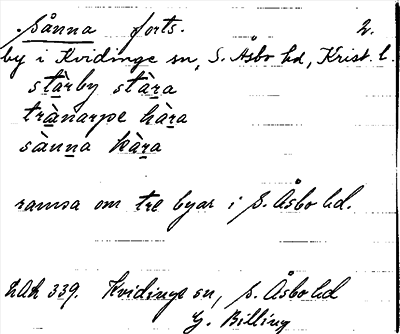 Sånna forts. 2.
by i Kvidinge sn, S. Åsbo hd, Krist. l.
stàrby stàra
trànarpe hàra
sànna kàra
ramsa om tre byar i S. Åsbo hd.
LAL 339. Kvidinge sn, S. Åsbo hd
G. Billing